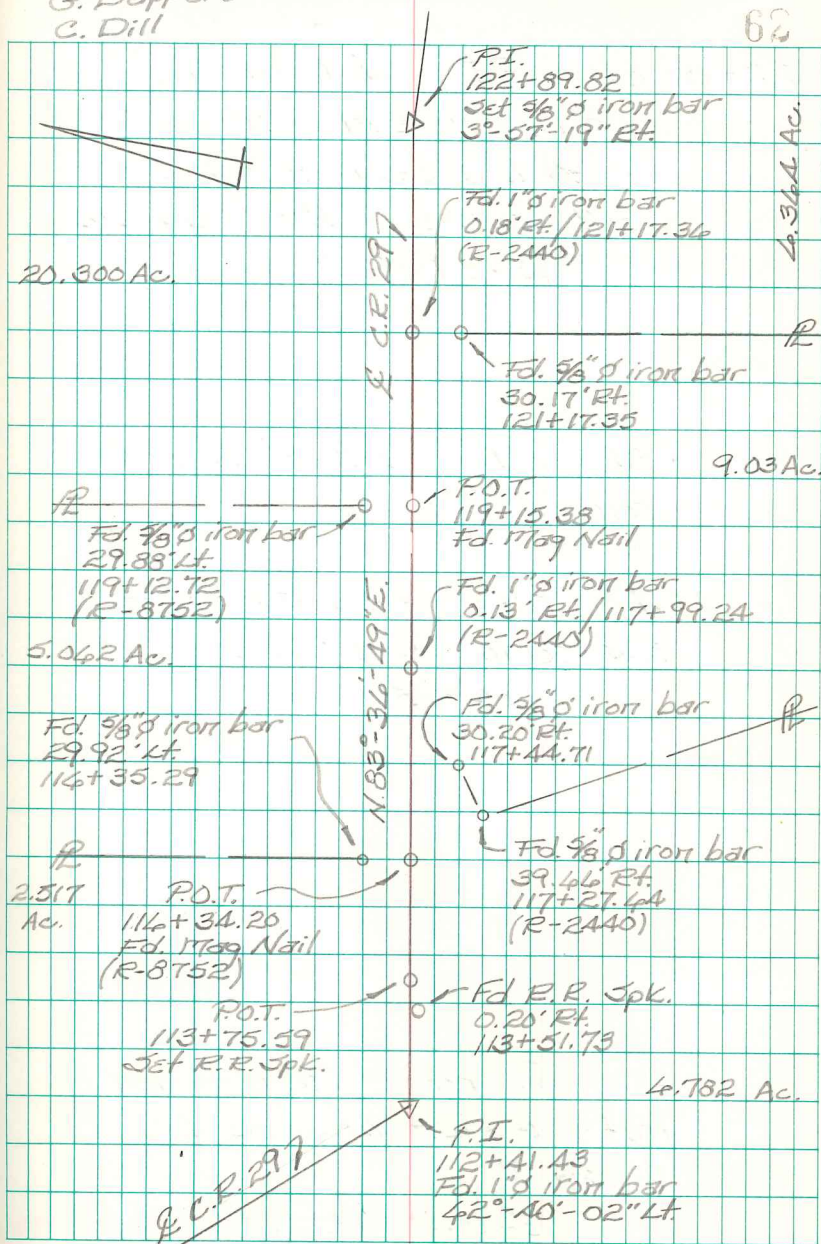 C. Dill
62
P.I.
122+89.82
Set 5/8"ø iron bar
3°-57'-19" Rt.
6.364 Ac.
Fd. 1"ø iron bar
0.18' Rt./121+17.36
(R-2440)
20.300 Ac.
℄ C.R. 297
PL
Fd. 5/8"ø iron bar
30.17' Rt.
121+17.35
9.03 Ac.
PL
P.O.T.
119+15.38
Fd. Mag Nail
Fd. 5/8"ø iron bar
29.88' Lt.
119+12.72
(R-8752)
Fd. 1"ø iron bar
0.13' Rt./117+99.24
(R-2440)
5.062 Ac.
N.83°-36'-49"E.
Fd. 5/8"ø iron bar
30.20' Rt.
117+44.71
PL
Fd. 5/8"ø iron bar
29.92' Lt.
116+35.29
Fd. 5/8"ø iron bar
39.66' Rt.
117+27.64
(R-2440)
PL
2.517
Ac.
P.O.T.
116+34.20
Fd. Mag Nail
(R-8752)
P.O.T.
113+75.59
Set R.R. Spk.
Fd R.R. Spk.
0.20' Rt.
113+51.73
6.782 Ac.
P.I.
112+41.43
Fd. 1"ø iron bar
62°-40'-02" Lt.
℄ C.R. 297